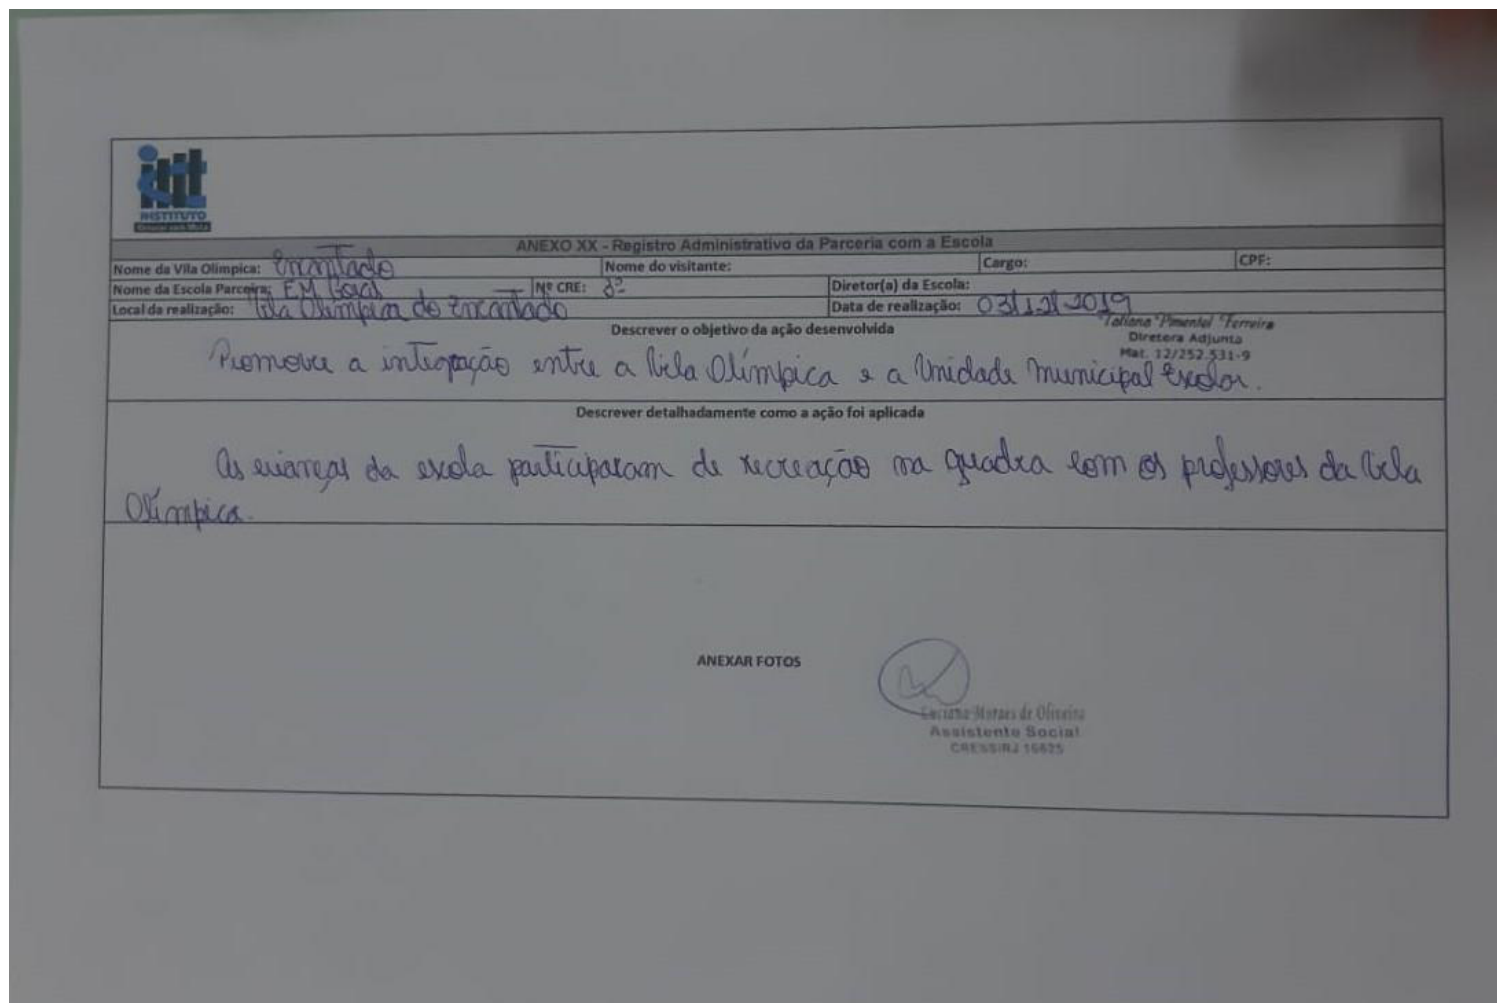 INSTITUTO
ANEXO XX - Registro Administrativo da Parceria com a Escola
Nome da Vila Olímpica: Encantado Nome do visitante: Cargo: CPF:
Nome da Escola Parceira: EM Goiás Nº CRE: 3ª Diretor(a) da Escola:
Local da realização: Vila Olímpica do Encantado Data de realização: 03/12/2019
Tatiana Pimentel Ferreira
Diretora Adjunta
Mat. 12/252.531-9
Descrever o objetivo da ação desenvolvida
Promover a integração entre a Vila Olímpica e a Unidade Municipal Escolar.
Descrever detalhadamente como a ação foi aplicada
As crianças da escola participaram de recreação na quadra com os professores da Vila
Olímpica.
ANEXAR FOTOS
Luciana Moraes de Oliveira
Assistente Social
CRESS/RJ 16625